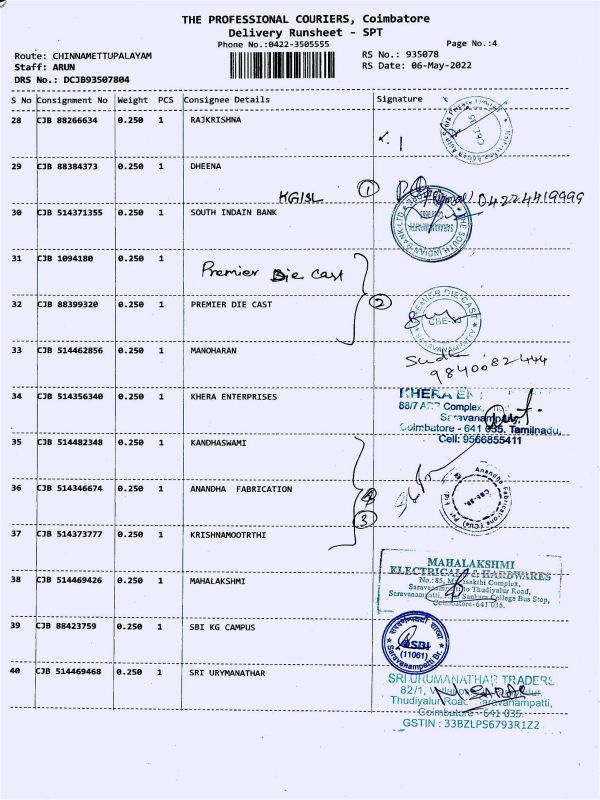 THE PROFESSIONAL COURIERS, Coimbatore
Delivery Runsheet - SPT
Phone No.:0422-3505555
Page No.:4
Route: CHINNAMETTUPALAYAM
RS No.: 935078
Staff: ARUN
RS Date: 06-May-2022
DRS No.: DCJB93507804
S No Consignment No Weight PCS Consignee Details Signature
28 CJB 88266634 0.250 1 RAJKRISHNA
29 CJB 88384373 0.250 1 DHEENA
KGISL 1 04224419999
30 CJB 514371355 0.250 1 SOUTH INDAIN BANK
THE SOUTH INDIAN BANK LTD
31 CJB 1094180 0.250 1
Premier Die Cast
2
32 CJB 88399320 0.250 1 PREMIER DIE CAST
PREMIER DIE CAST
CBE-35
SARAVANAMPATTY
33 CJB 514462856 0.250 1 MANOHARAN
Sudha
9840082444
34 CJB 514356340 0.250 1 KHERA ENTERPRISES
KHERA EN
68/7 Complex,
Saravanampatty,
Coimbatore - 641 035. Tamilnadu,
Cell: 9566855411
35 CJB 514482348 0.250 1 KANDHASWAMI
36 CJB 514346674 0.250 1 ANANDHA FABRICATION
Anandha Fabrications (Cbe) Pvt
37 CJB 514373777 0.250 1 KRISHNAMOOTRTHI
3
38 CJB 514469426 0.250 1 MAHALAKSHMI
MAHALAKSHMI
ELECTRICALS & HARDWARES
No.:85, Complex,
Thudiyalur Road,
College Bus Stop,
Coimbatore-641 035.
39 CJB 88423759 0.250 1 SBI KG CAMPUS
SBI
(11061)
Saravanampatti Br.
40 CJB 514469468 0.250 1 SRI URYMANATHAR
SRI URUMANATHAR TRADERS
82/1,
Thudiyalur Road Saravanampatti,
Coimbatore - 641 035.
GSTIN : 33BZLPS6793R1Z2